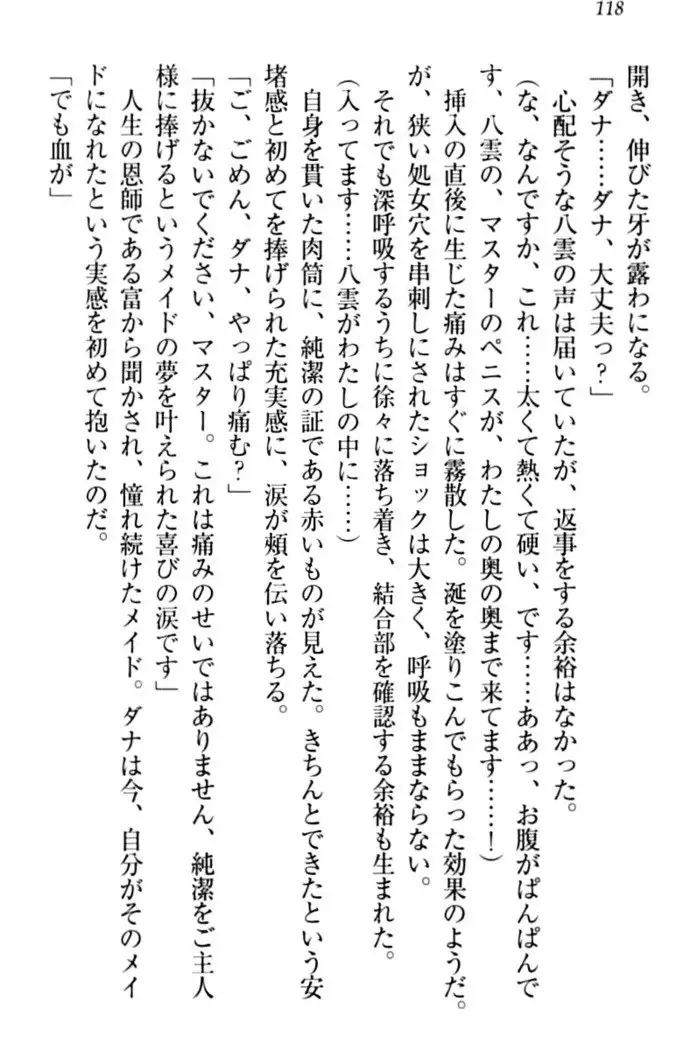 118
開き、伸びた牙が露わになる。
「ダナ……ダナ、大丈夫っ？」
心配そうな八雲の声は届いていたが、返事をする余裕はなかった。
(な、なんですか、これ……太くて熱くて硬い、です……ああっ、お腹がぱんぱんで
す、八雲の、マスターのペニスが、わたしの奥の奥まで来てます……！)
挿入の直後に生じた痛みはすぐに霧散した。涎を塗りこんでもらった効果のようだ。
が、狭い処女穴を串刺しにされたショックは大きく、呼吸もままならない。
それでも深呼吸するうちに徐々に落ち着き、結合部を確認する余裕も生まれた。
(入ってます……八雲がわたしの中に……)
自身を貫いた肉筒に、純潔の証である赤いものが見えた。きちんとできたという安
堵感と初めてを捧げられた充実感に、涙が頬を伝い落ちる。
「ご、ごめん、ダナ、やっぱり痛む？」
「抜かないでください、マスター。これは痛みのせいではありません、純潔をご主人
様に捧げるというメイドの夢を叶えられた喜びの涙です」
人生の恩師である富から聞かされ、憧れ続けたメイド。ダナは今、自分がそのメイ
ドになれたという実感を初めて抱いたのだ。
「でも血が」